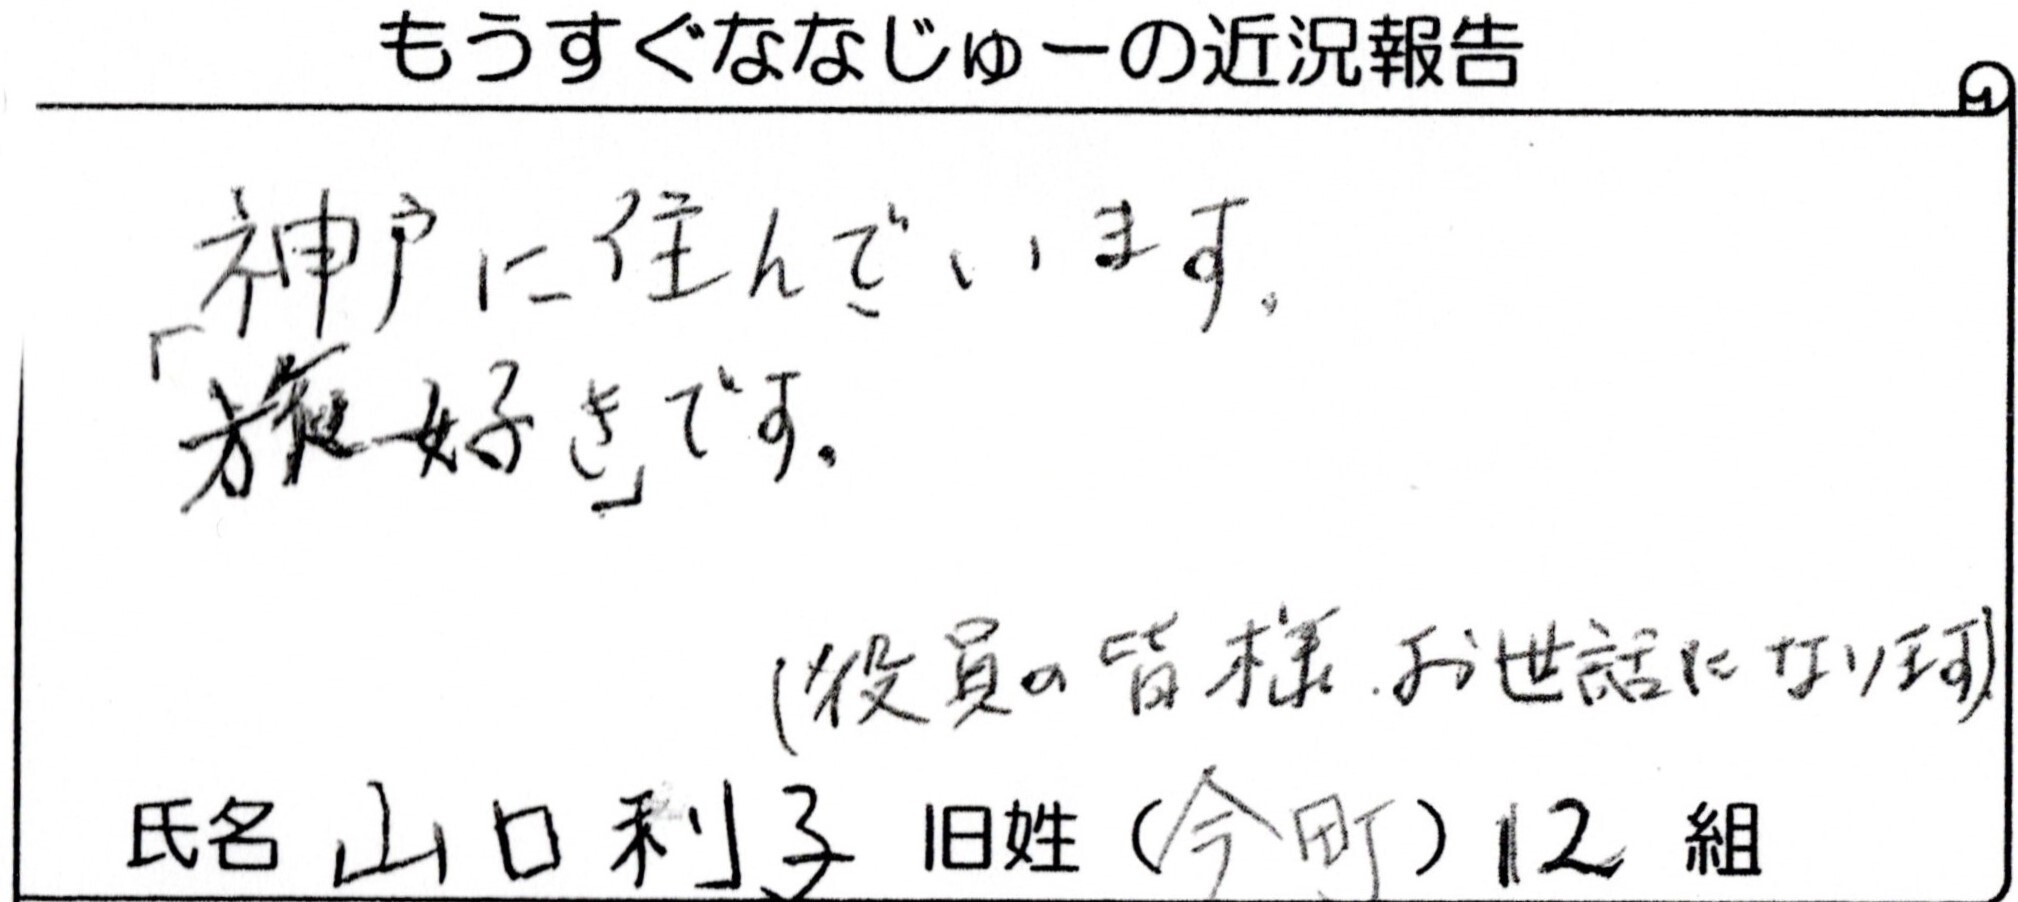 もうすぐななじゅーの近況報告
神戸に住んでいます。
「旅好き」です。
(役員の皆様.お世話になります)
氏名 山口利子 旧姓(今町)12 組